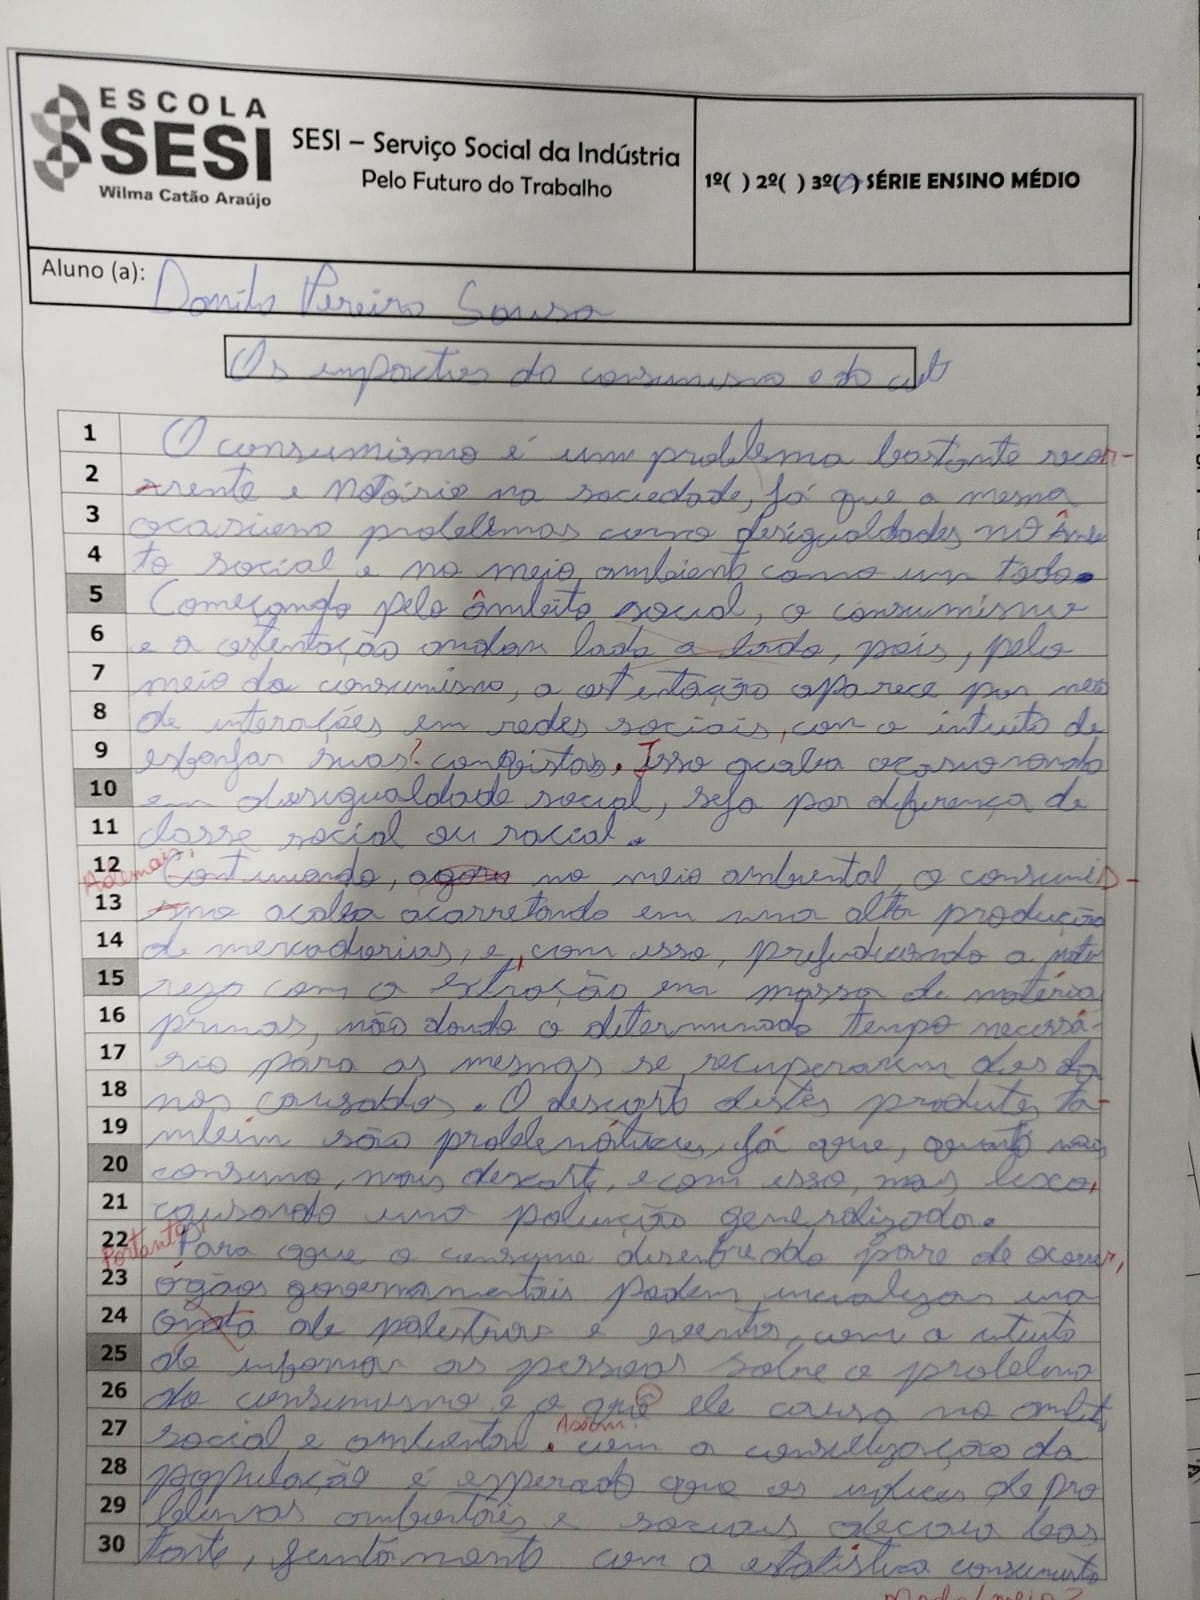 ESCOLA
SESI
Wilma Catão Araújo
SESI – Serviço Social da Indústria
Pelo Futuro do Trabalho
1º( ) 2º( ) 3º( ) SÉRIE ENSINO MÉDIO
Aluno (a): Danilo Pereira Sousa
Os impactes do consumismo e do
1 O consumismo é um problema bastante recor-
2 rrente e notório na sociedade, já que a mesma
3 problemas como desigualdades no âmbi
4 to social e no meio ambiente como um todo.
5 Começando pelo âmbito social, o consumismo
6 e a ostentação andam lado a lado, pois, pelo
7 meio do consumismo, a ostentação aparece por meio
8 de interações em redes sociais, com o intuito de
9 esbanjar suas? conquistas. Isso acaba ocasionando
10 em desigualdade social, seja por diferença de
11 classe social ou racial.
Ademais,
12 Continuando, agora no meio ambiental o consumis-
13 smo acaba acarretando em uma alta produção
14 de mercadorias, e, com isso, prejudicando a natu
15 reza com a extração em massa de matéria
16 primas, não dando o determinado tempo necessá-
17 rio para as mesmas se recuperarem dos da
18 nos causados. O descarte destes produtos ta-
19 mbeim são problemáticos, já que, quanto mais
20 consumo, mais descarte, e com isso, mais lixo,
21 causando uma poluição generalizada.
Portanto,
22 Para que o consumo desenfreado pare de ocorrer,
23 órgãos governamentais podem
24 de palestras e eventos, com o intuito
25 de informar as pessoas sobre o problema
26 do consumismo e o que ele causa no ambito
Assim,
27 social e ambiental. com a
28 população é esperado que os indices de pro
29 blemas ambientais e sociais bas
30 tante, juntamente com a estatistica consumista